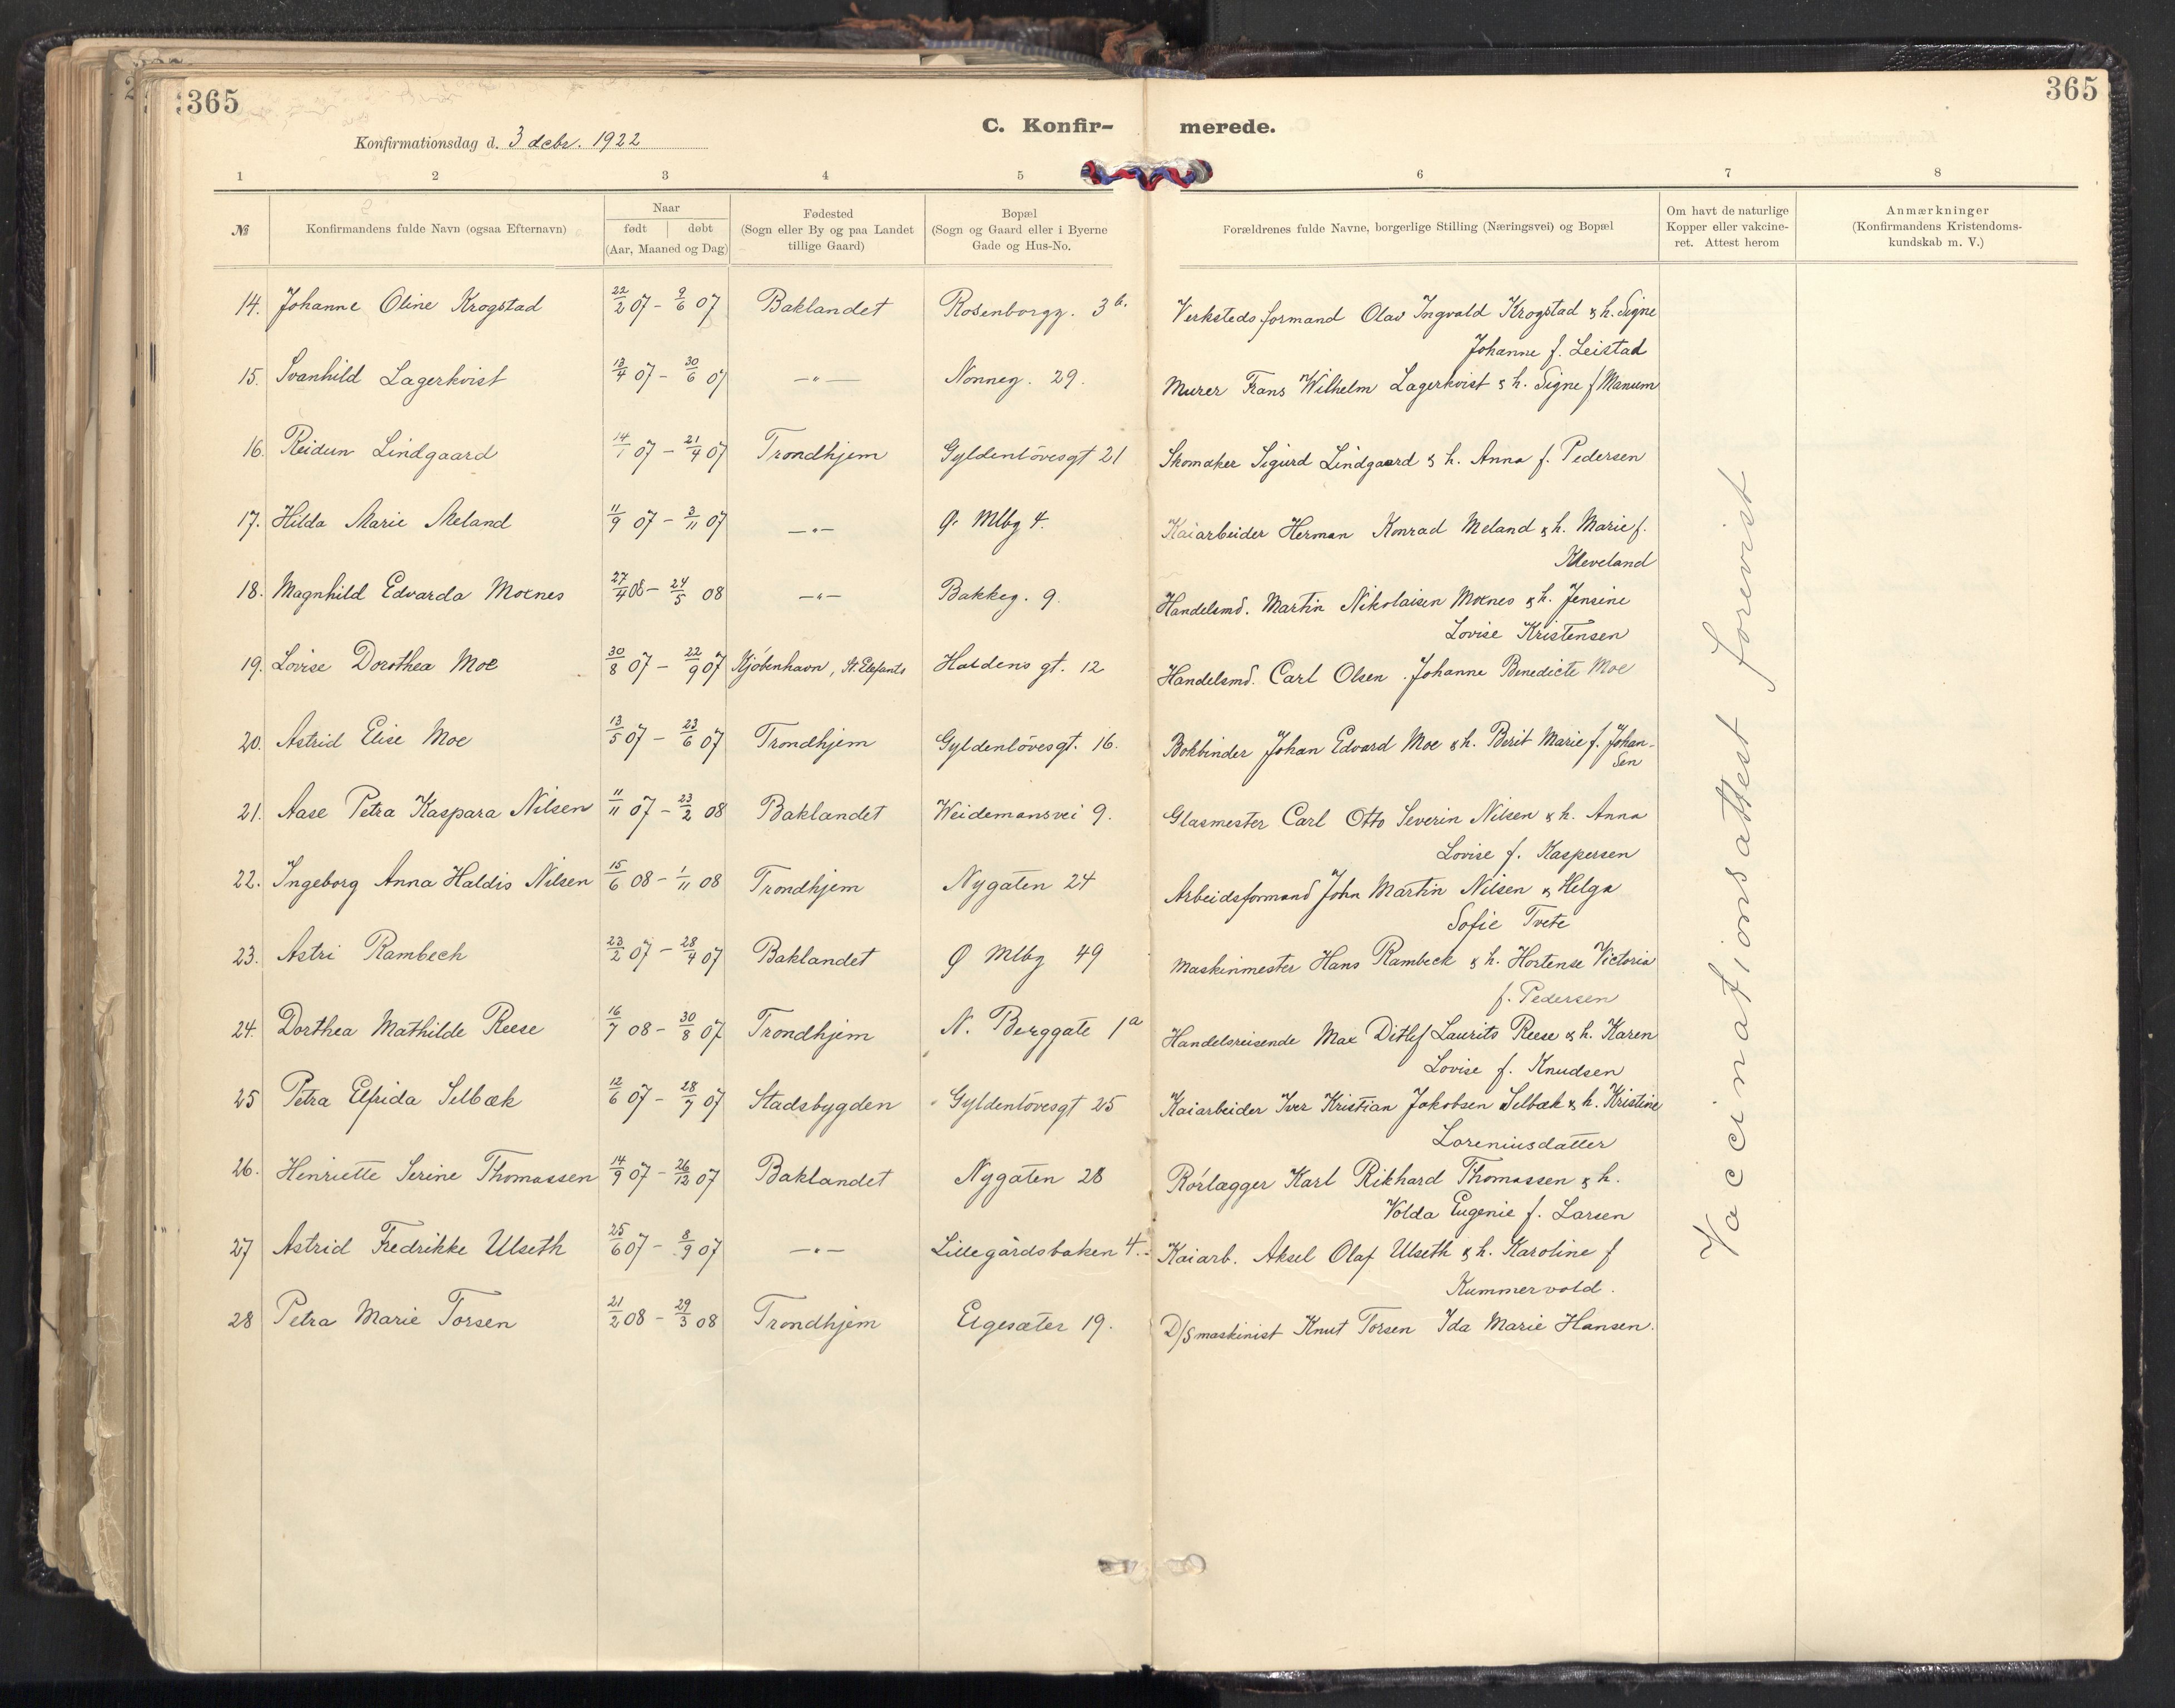 365
365
C. Konfir- merede.
Konfirmationsdag d. 3 debr. 1922
1 2 3 4 5 6 7 8
№
Konfirmandens fulde Navn (ogsaa Efternavn)
Naar
født døbt
(Aar, Maaned og Dag)
Fødested
(Sogn eller By og paa Landet
tillige Gaard)
Bopæl
(Sogn og Gaard eller i Byerne
Gade og Hus-No.
Forældrenes fulde Navne, borgerlige Stilling (Næringsvei) og Bopæl
Om havt de naturlige
Kopper eller vakcine-
ret. Attest herom
Anmærkninger
(Konfirmandens Kristendoms-
kundskab m. V.)
14. Johanne Oline Krogstad 22/2 07 - 9/6 07 Baklandet Rosenborgg. 3 b. Verkstedsformand Olav Ingvald Krogstad & h. Signe
Johanne f. Leistad
15. Svanhild Lagerkvist 13/4 07 - 30/6 07 —"— Nonneg. 29. Murer Frans Wilhelm Lagerkvist & h. Signe f Manum
16. Reidun Lindgaard 14/1 07 - 21/4 07 Trondhjem Gyldenlövesgt 21 Skomaker Sigurd Lindgaard & h. Anna f. Pedersen
17. Hilda Marie Meland 11/9 07 - 3/11 07 —"— Ø. Mlbg 4. Kaiarbeider Herman Konrad Meland & h. Marie f.
Kleveland
18. Magnhild Edvarda Moenes 27/4 08 - 24/5 08 —"— Bakkeg. 9. Handelsmd. Martin Nikolaisen Moenes & h. Jensine
Lovise Kristensen
19. Lovise Dorothea Moe 30/8 07 - 22/9 07 Kjøbenhavn, St. Elefants Haldens gt. 12 Handelsmd. Carl Olsen . Johanne Benedicte Moe
20. Astrid Elise Moe 13/5 07 - 23/6 07 Trondhjem Gyldenlövesgt. 16. Bokbinder Johan Edvard Moe & h. Berit Marie f. Johan-
sen
21. Aase Petra Kaspara Nilsen 11/11 07 - 23/2 08 Baklandet Weidemansvei 9. Glasmester Carl Otto Severin Nilsen & h. Anna
Lovise f. Kaspersen
22. Ingeborg Anna Haldis Nilsen 15/6 08 - 1/11 08 Trondhjem Nygaten 24 Arbeidsformand John Martin Nilsen & Helga
Sofie Tvete
23. Astri Rambech 23/2 07 - 28/4 07 Baklandet Ø Mlbg 49 Maskinmester Hans Rambeck & h. Hortense Victoria
f. Pedersen
24. Dorthea Mathilde Reese 16/7 08 - 30/8 07 Trondhjem N. Berggate 1a Handelsreisende Max Ditlef Laurits Reese & h. Karen
Lovise f. Knudsen
25 Petra Elfrida Selbæk 12/6 07 - 28/7 07 Stadsbygden Gyldenlövesgt 25 Kaiarbeider Iver Kristian Jakobsen Selbæk & h. Kristine
Loreniusdatter
26. Henriette Serine Thomassen 14/9 07 - 26/12 07 Baklandet Nygaten 28 Rörlægger Karl Rikhard Thomassen & h.
Volda Eugenie f. Larsen
27 Astrid Fredrikke Ulseth 25/6 07 - 8/9 07 —"— Lillegårdsbaken 4. Kaiarb. Aksel Olaf Ulseth & h. Karoline f
Kummervold.
28 Petra Marie Torsen 21/2 08 - 29/3 08 Trondhjem Elgesæter 19. D/S maskinist Knut Torsen Ida Marie Hansen.
Vaccinationsattest forevist